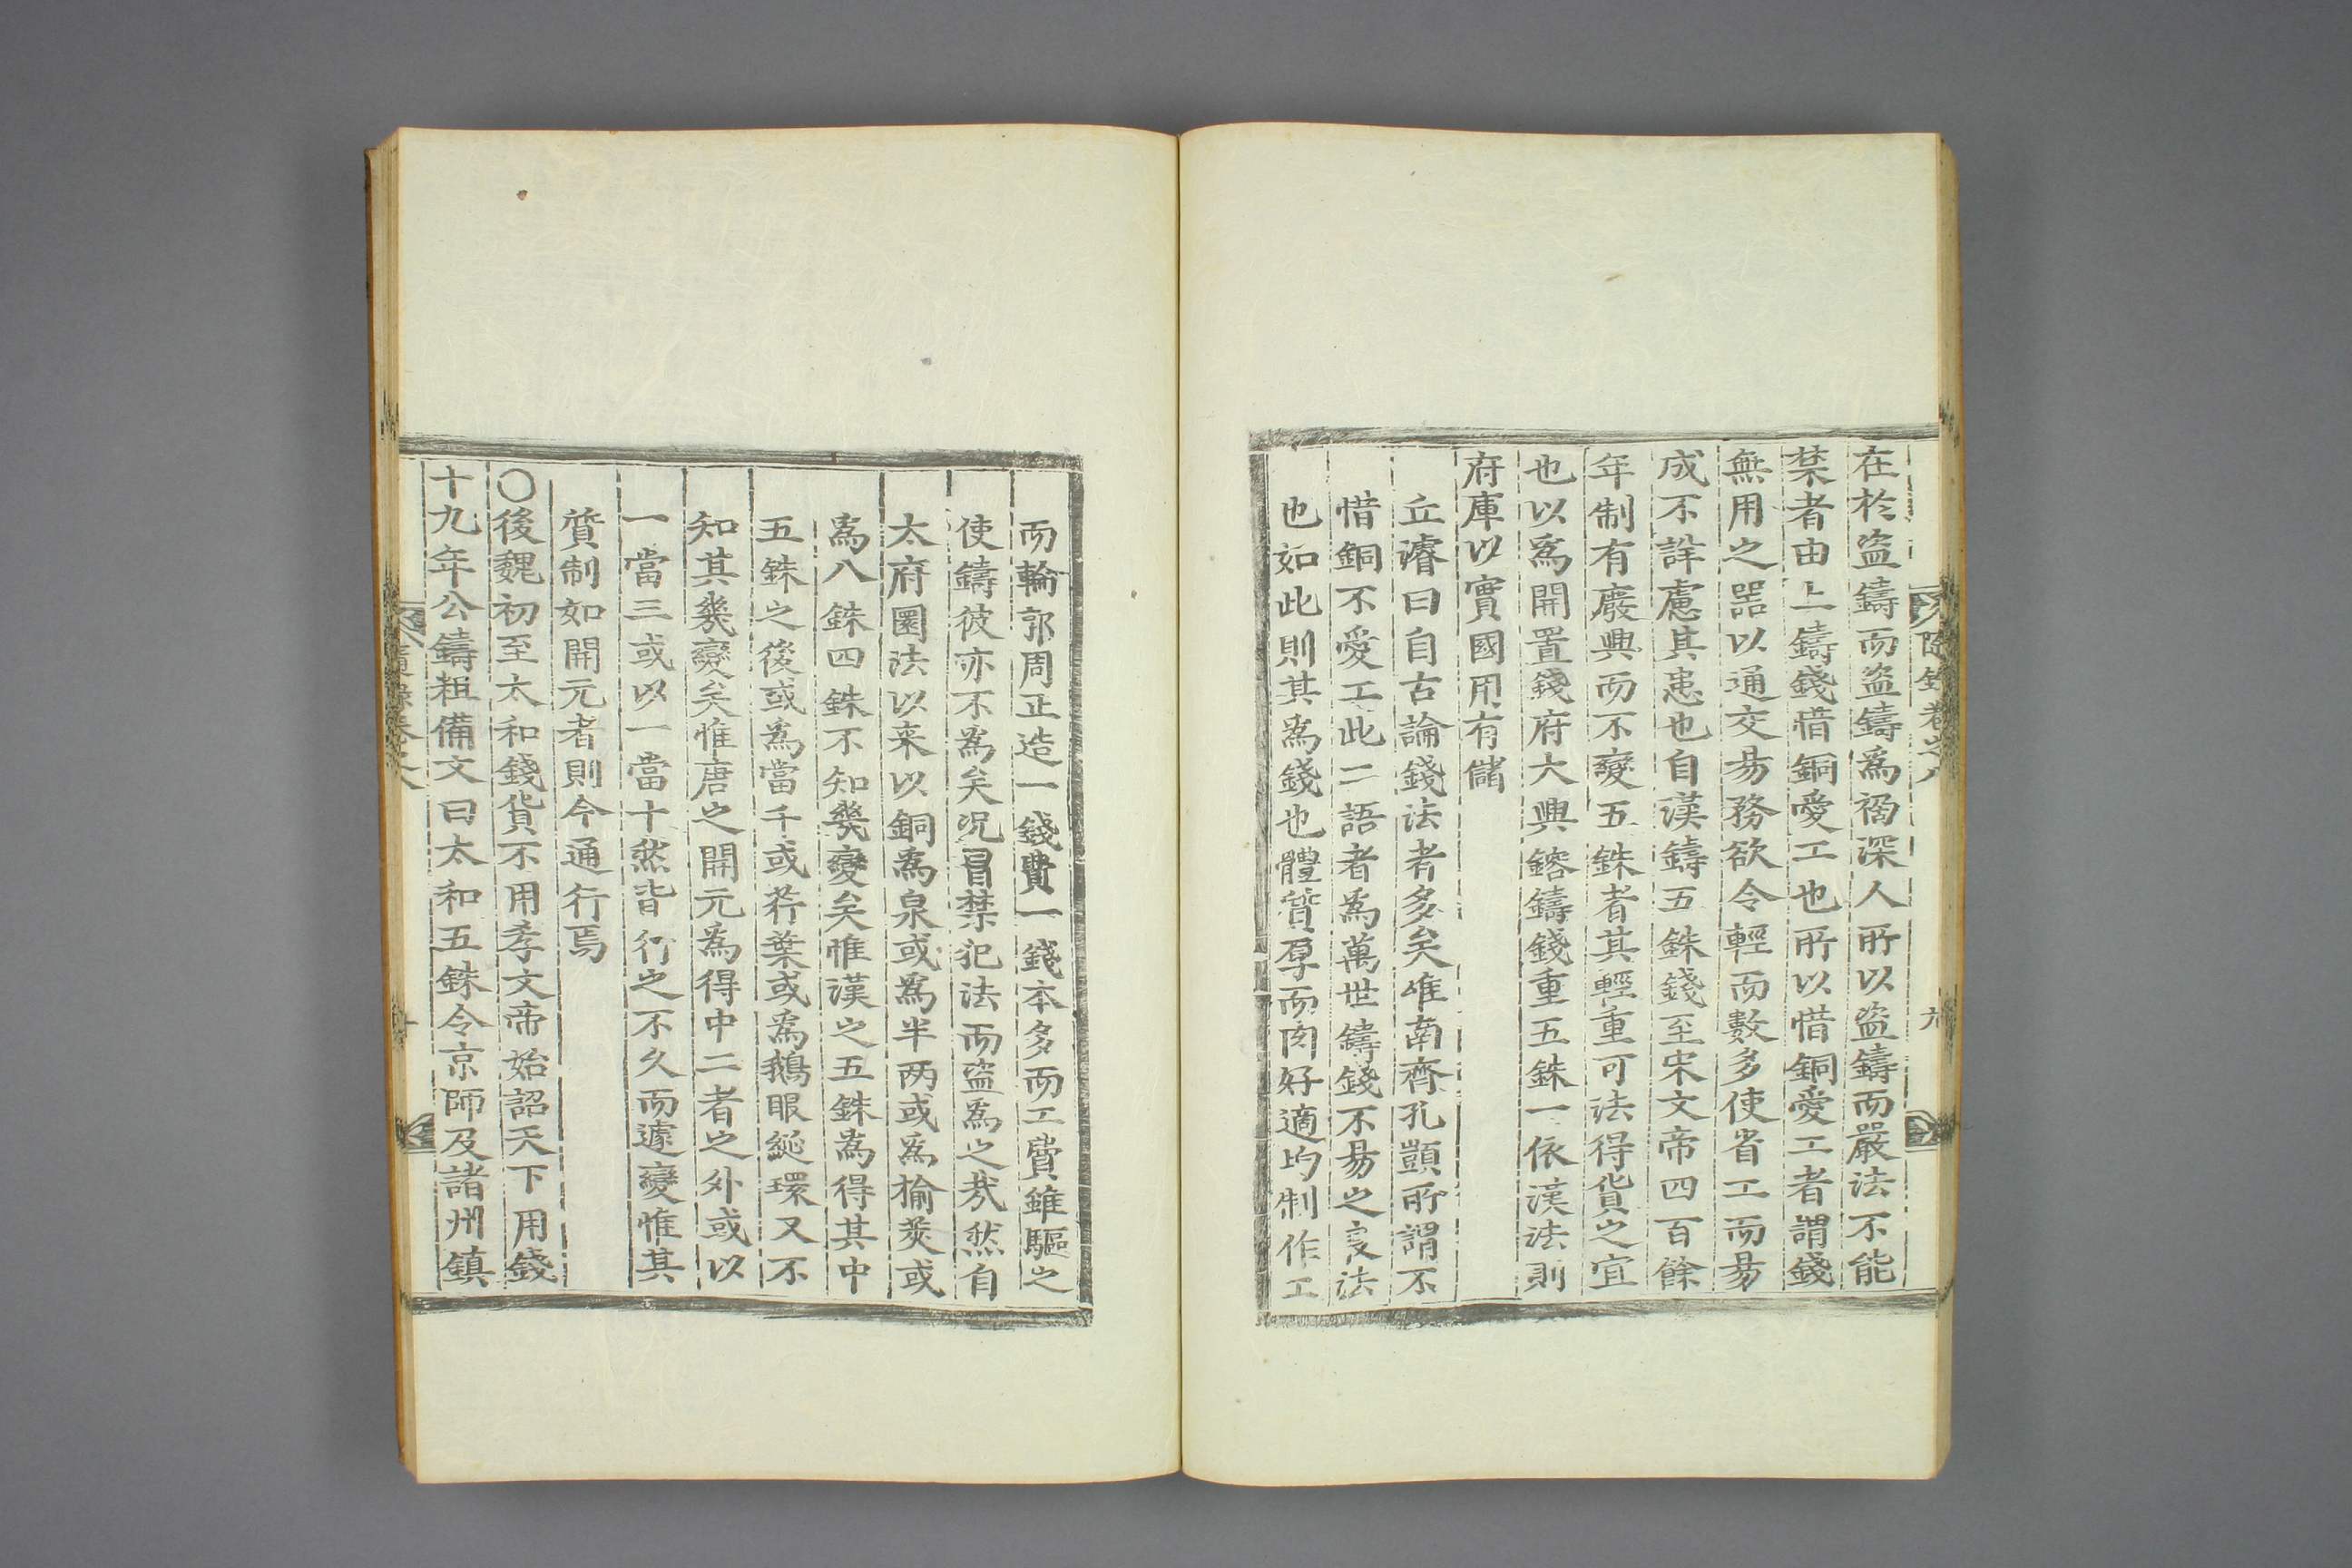 在於盗鑄而盗鑄爲禍深人所以盗鑄而嚴法不能
禁者由上鑄錢惜銅愛工也所以惜銅愛工者謂錢
無用之器以通交易務欲令輕而數多使省工而易
成不詳慮其患也自漢鑄五銖錢至宋文帝四百餘
年制有廢興而不變五銖者其輕重可法得貨之宜
也以爲開置錢府大興鎔鑄錢重五銖一依漢法則
府庫以實國用有儲
丘濬曰自古論錢法者多矣唯南齊孔顗所謂不
惜銅不愛工此二語者爲萬世鑄錢不易之良法
也如此則其爲錢也體質厚而肉好適均制作工
而輪郭周正造一錢費一錢本多而工費雖驅之
使鑄彼亦不爲矣况冒禁犯法而盗爲之㢤然自
太府圜法以来以銅爲泉或爲半两或爲揄莢或
爲八銖四銖不知幾變矣惟漢之五銖爲得其中
五銖之後或爲當千或荇葉或爲鵝眼綖環又不
知其幾變矣惟唐之開元爲得中二者之外或以
一當三或以一當十然皆行之不久而遽變惟其
質制如開元者則今通行焉
〇後魏初至太和錢貨不用孝文帝始詔天下用錢
十九年公鑄粗備文曰太和五銖令京師及諸州鎮
卷之八 九